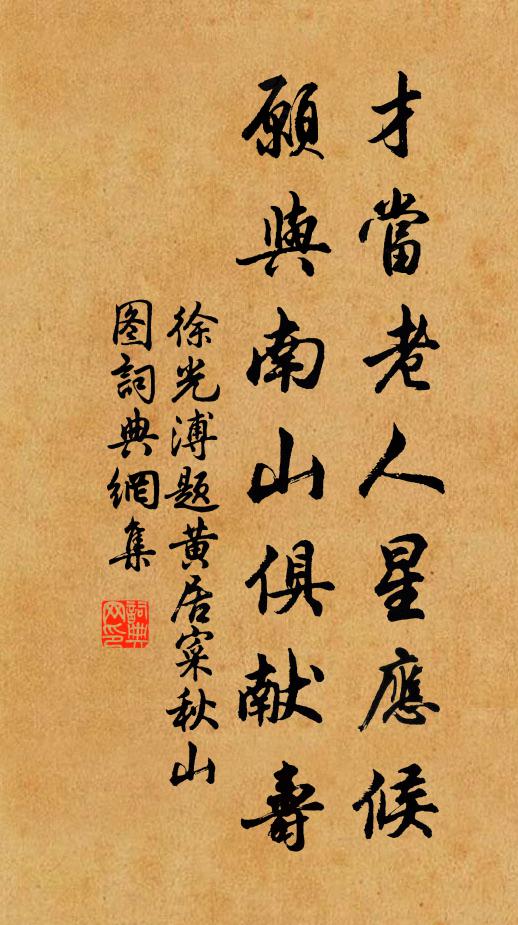 才當老人星應候
願與南山俱献壽
徐光溥题黄居寀秋山
图詞典網集
詞典
网印